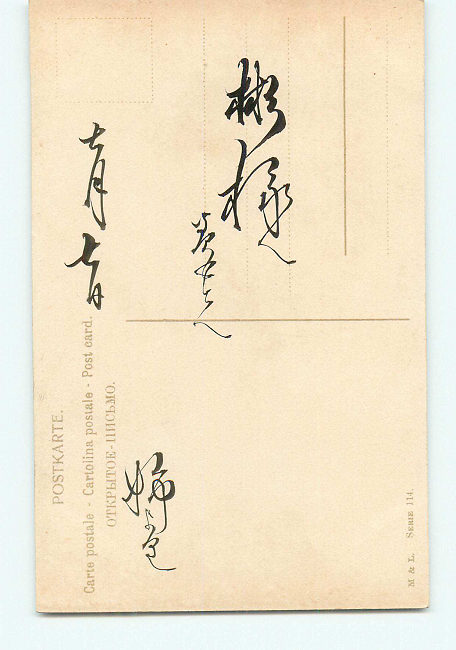 彬様へ
七月七日
姉より
POSTKARTE.
Carte postale - Cartolina postale - Post card.
ОТКРЫТОЕ-ПИСЬМО.
M & L. SERIE 114.